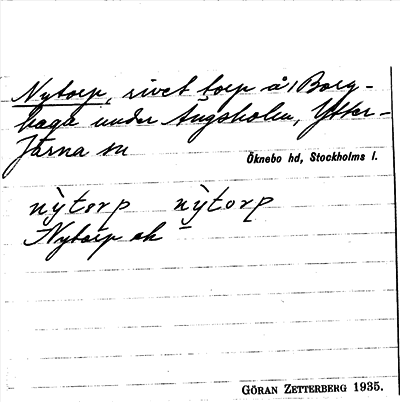 Nytorp, rivet torp å Borg-
haga under Tugsholm, Ytter-
järna sn
Öknebo hd, Stockholms l.
nỳtorp nỳtorp
Nytorp ek
GÖRAN ZETTERBERG 1935.